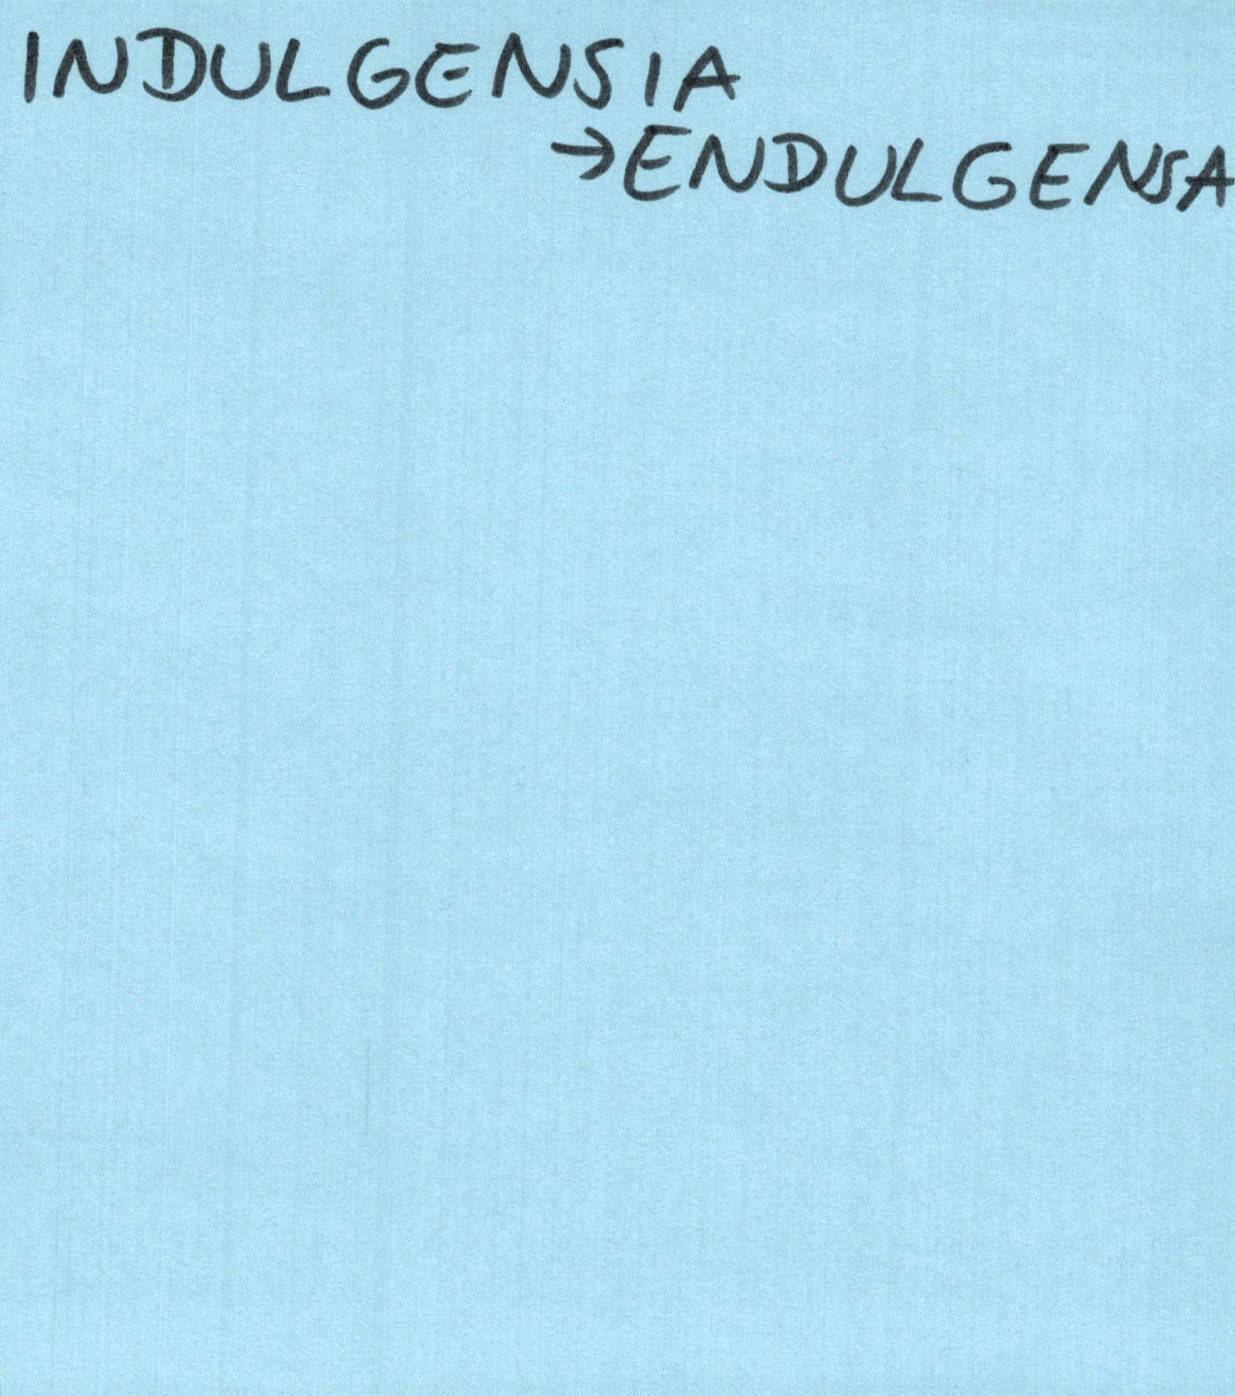 INDULGENSIA
→ENDULGENSA